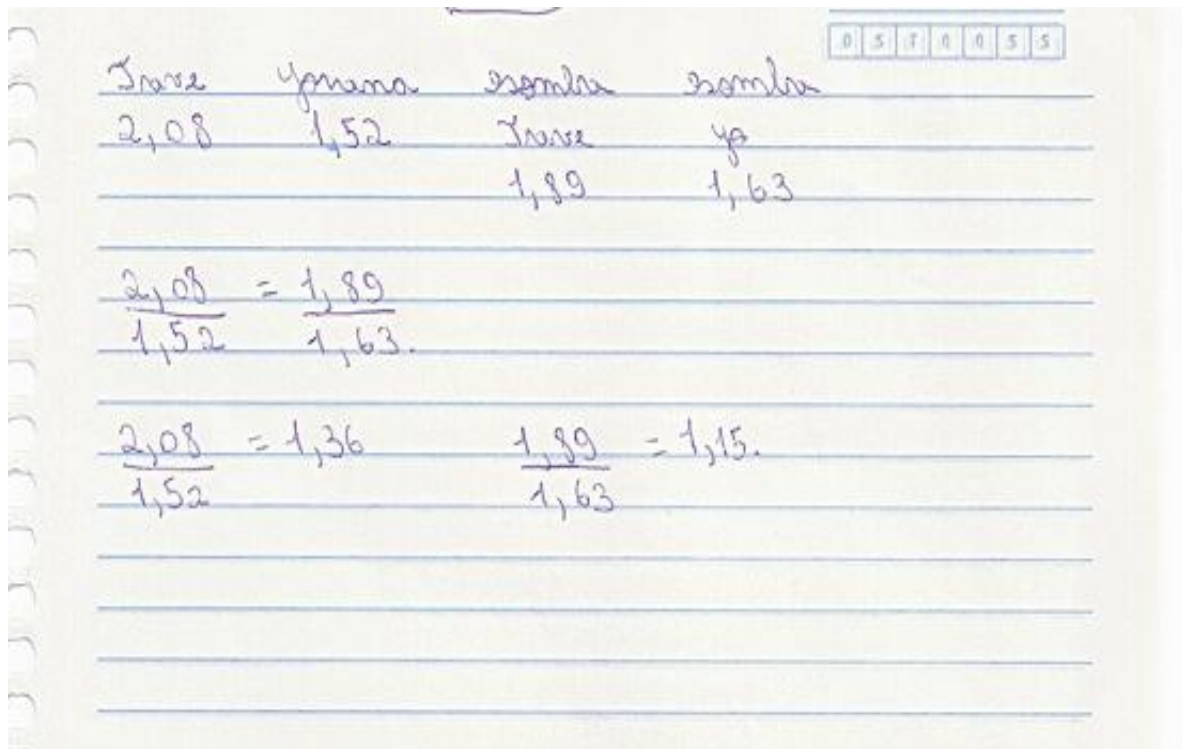 0570055
Trave Yonana sombra sombra
2,08 1,52 Trave yo
1,89 1,63
2,08 = 1,89
1,52 1,63.
2,08 = 1,36 1,89 = 1,15.
1,52 1,63